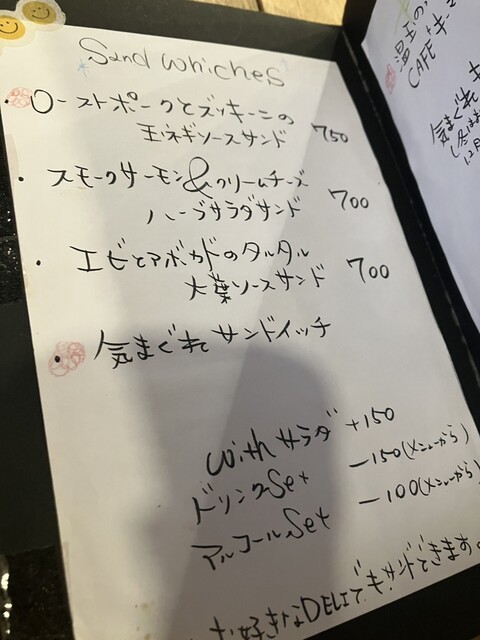 Sand whiches
ローストポークとズッキーニの
玉ネギソースサンド 750
スモークサーモン&クリームチーズ
ハーブサラダサンド 700
エビとアボカドのタルタル
大葉ソースサンド 700
気まぐれサンドイッチ
with サラダ +150
ドリンクSet -150(メニューから)
アルコールSet -100(メニューから)
お好きなDELIでもサンドできます。
温玉の
CAFE
気まぐれ
12月